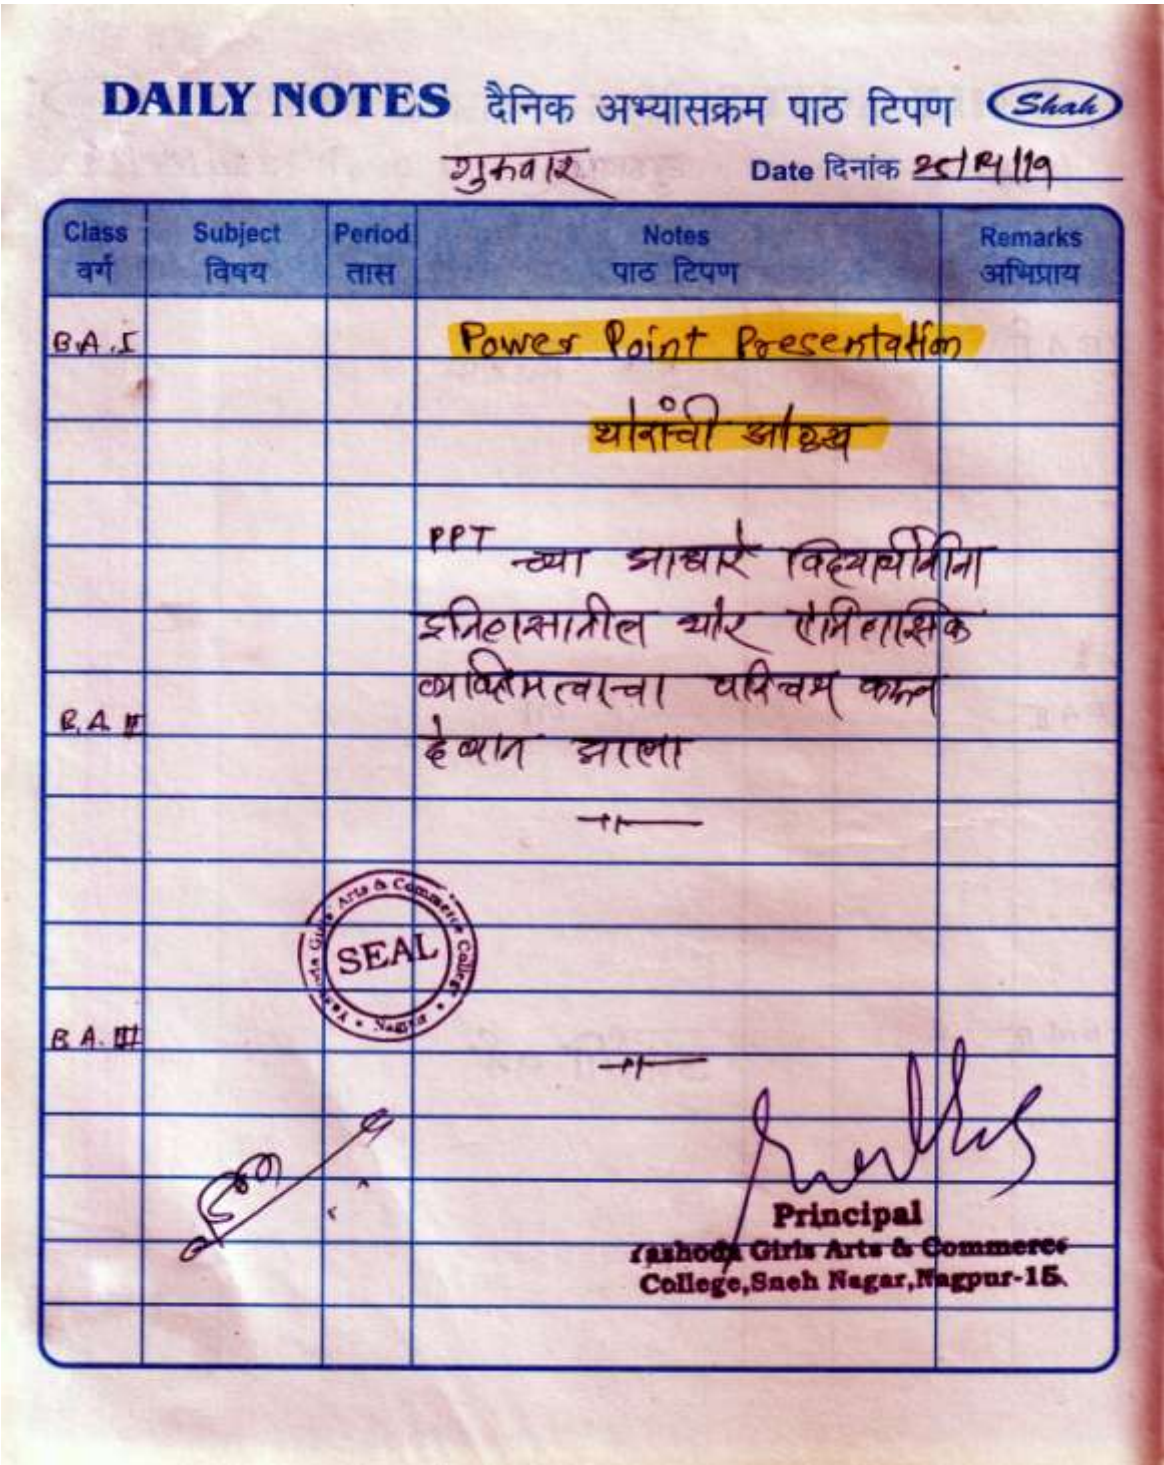 DAILY NOTES दैनिक अभ्यासक्रम पाठ टिपण Shah
शुक्रवार Date दिनांक
Class Subject Period Notes Remarks
वर्ग विषय तास पाठ टिपण अभिप्राय
B.A.I Power Point Presentation
थोरांची ओळख
PPT च्या आधारे विद्यार्थीनींना
इतिहासातील थोर ऐतिहासिक
व्यक्तिमत्वाचा परिचय करून
B.A. II देण्यात आला
Yashoda Girls Arts & Commerce College
SEAL
Nagpur
B.A. III
Principal
Yashoda Girls Arts & Commerce
College, Sneh Nagar, Nagpur-15.